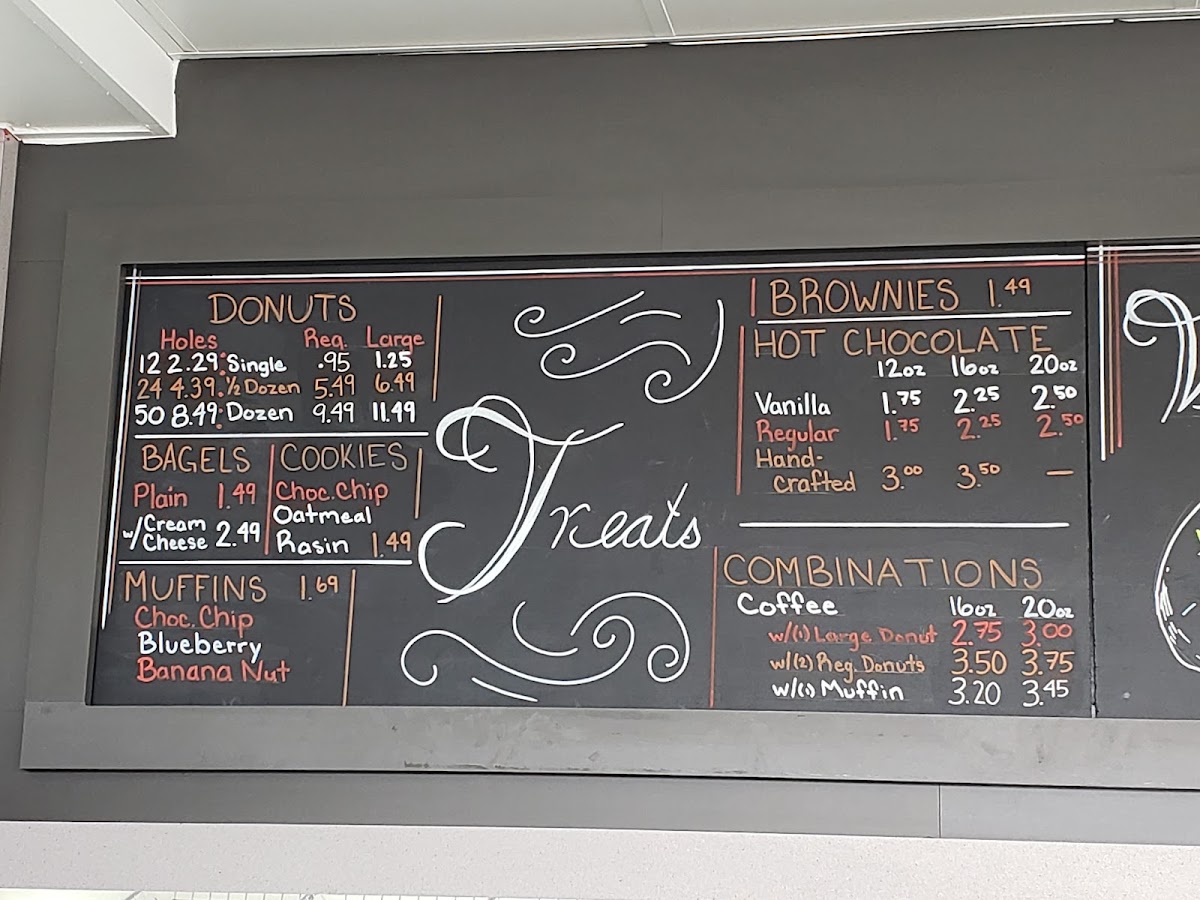 DONUTS
Holes Reg. Large
12 2.29: Single .95 1.25
24 4.39: 1/2 Dozen 5.49 6.49
50 8.49: Dozen 9.49 11.49
BAGELS
Plain 1.49
w/Cream Cheese 2.49
COOKIES
Choc. Chip
Oatmeal
Rasin 1.49
MUFFINS 1.69
Choc. Chip
Blueberry
Banana Nut
Treats
BROWNIES 1.49
HOT CHOCOLATE
12oz 16oz 20oz
Vanilla 1.75 2.25 2.50
Regular 1.75 2.25 2.50
Hand-
crafted 3.00 3.50 —
COMBINATIONS
Coffee 16oz 20oz
w/(1) Large Donut 2.75 3.00
w/(2) Reg. Donuts 3.50 3.75
w/(1) Muffin 3.20 3.45